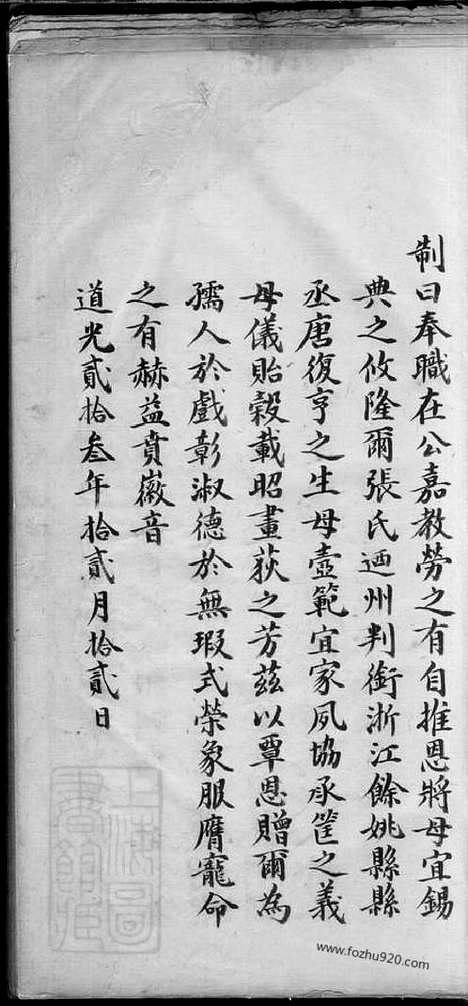 制曰奉職在公嘉教勞之有自推恩將母宜錫
典之攸隆爾張氏迺州判銜浙江餘姚縣縣
丞唐復亨之生母壼範宜家夙協承筐之義
母儀貽穀載昭畫荻之芳茲以覃恩贈爾為
孺人於戲彰淑德於無瑕式榮象服膺寵命
之有赫益賁徽音
道光貳拾叁年拾貳月拾貳日
上海圖書館藏
www.fozhu920.com